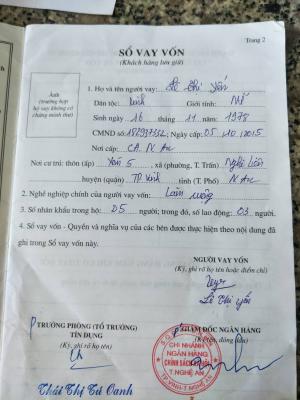 Trang 2
SỔ VAY VỐN
(Khách hàng lưu giữ)
Ảnh
(trường hợp
hộ vay không có
chứng minh thư)
1. Họ và tên người vay: Lê Thị Yến
Dân tộc: Kinh Giới tính: Nữ
Sinh ngày 16 tháng 11 năm 1978
CMND số: Ngày cấp: 05/10/2015
Nơi cấp: CA. N.An
Nơi cư trú: thôn (ấp) Xóm 5, xã (phường, T. Trấn) Nghi Liên
huyện (quận) TP Vinh tỉnh (T. Phố) N An
2. Nghề nghiệp chính của người vay vốn: Làm ruộng
3. Số nhân khẩu trong hộ: 05 người; trong đó, số lao động: 03 người.
4. Sổ vay vốn - Quyền và nghĩa vụ của các bên được thực hiện theo nội dung đã
ghi trong Sổ vay vốn này.
NGƯỜI VAY VỐN
(Ký, ghi rõ họ tên hoặc điểm chỉ)
Lê Thị Yến
TRƯỞNG PHÒNG (TỔ TRƯỞNG)
TÍN DỤNG
(Ký, ghi rõ họ tên)
GIÁM ĐỐC NGÂN HÀNG
(Ký tên, đóng dấu)
CHI NHÁNH
NGÂN HÀNG
CHÍNH SÁCH XÃ HỘI
T.NGHỆ AN
TP.VINH-T.NGHỆ AN
Thái Thị Tú Oanh